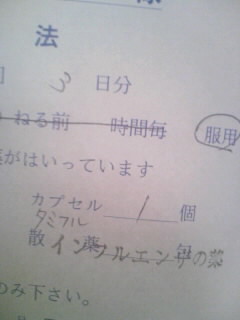 法
3 日分
ねる前 時間毎 服用
がはいっています
カプセル 1 個
タミフル
散薬
インフルエンザの薬
み下さい。